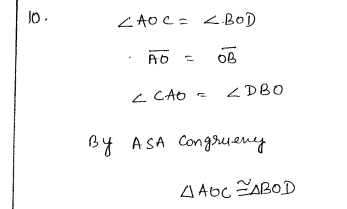 10. ∠AOC = ∠BOD
. A̅O̅ = O̅B̅
∠CAO = ∠DBO
By ASA Congruency
△AOC ≅ △BOD